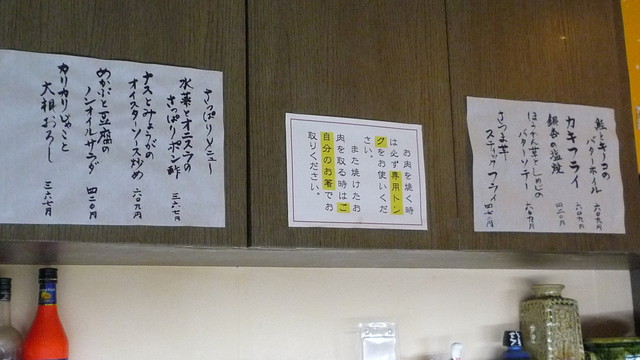 さっぱりメニュー
水菜とオニスラの
さっぱりポン酢 三六七円
ナスとみょうがの
オイスターソース炒め 六〇九円
めかぶと豆腐の
ノンオイルサラダ 四二〇円
カリカリじゃこと
大根おろし 三六七円
お肉を焼く時
は必ず専用トン
グをお使いくだ
さい。
また焼けたお
肉を取る時はご
自分のお箸でお
取りください。
鮭とキノコの
バターホイル 六〇九円
カキフライ 六〇九円
銀杏の塩煎 四二〇円
ほうれん草としめじの
バターソテー 六〇九円
さつま芋
スティックフライ 四七二円